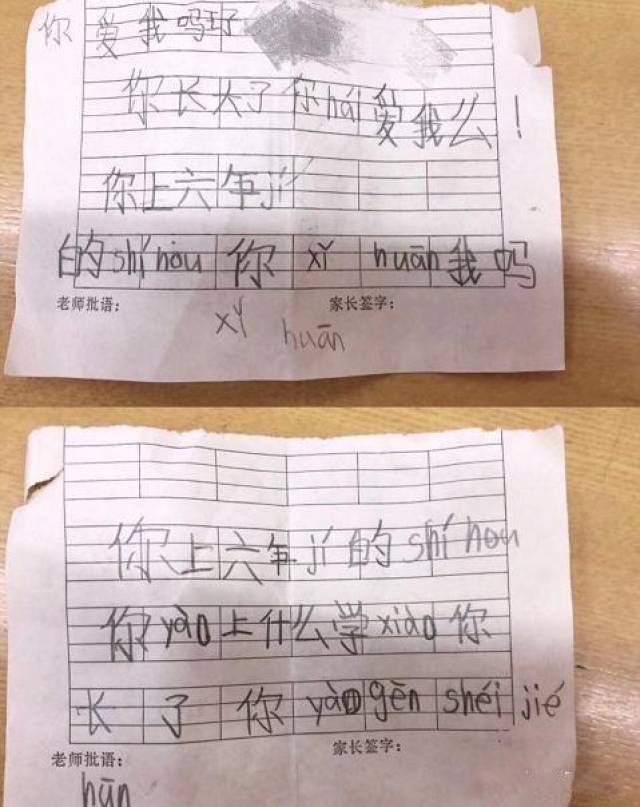 你爱我吗
你长大了你hái爱我么！
你上六年jí
的shí hou 你 xǐ huān我吗
老师批语： 家长签字：
xǐ huān
你上六年jí的shí hou
你yào上什么学xiào你
长了你yào gēn shéi jié
老师批语： 家长签字：
hūn